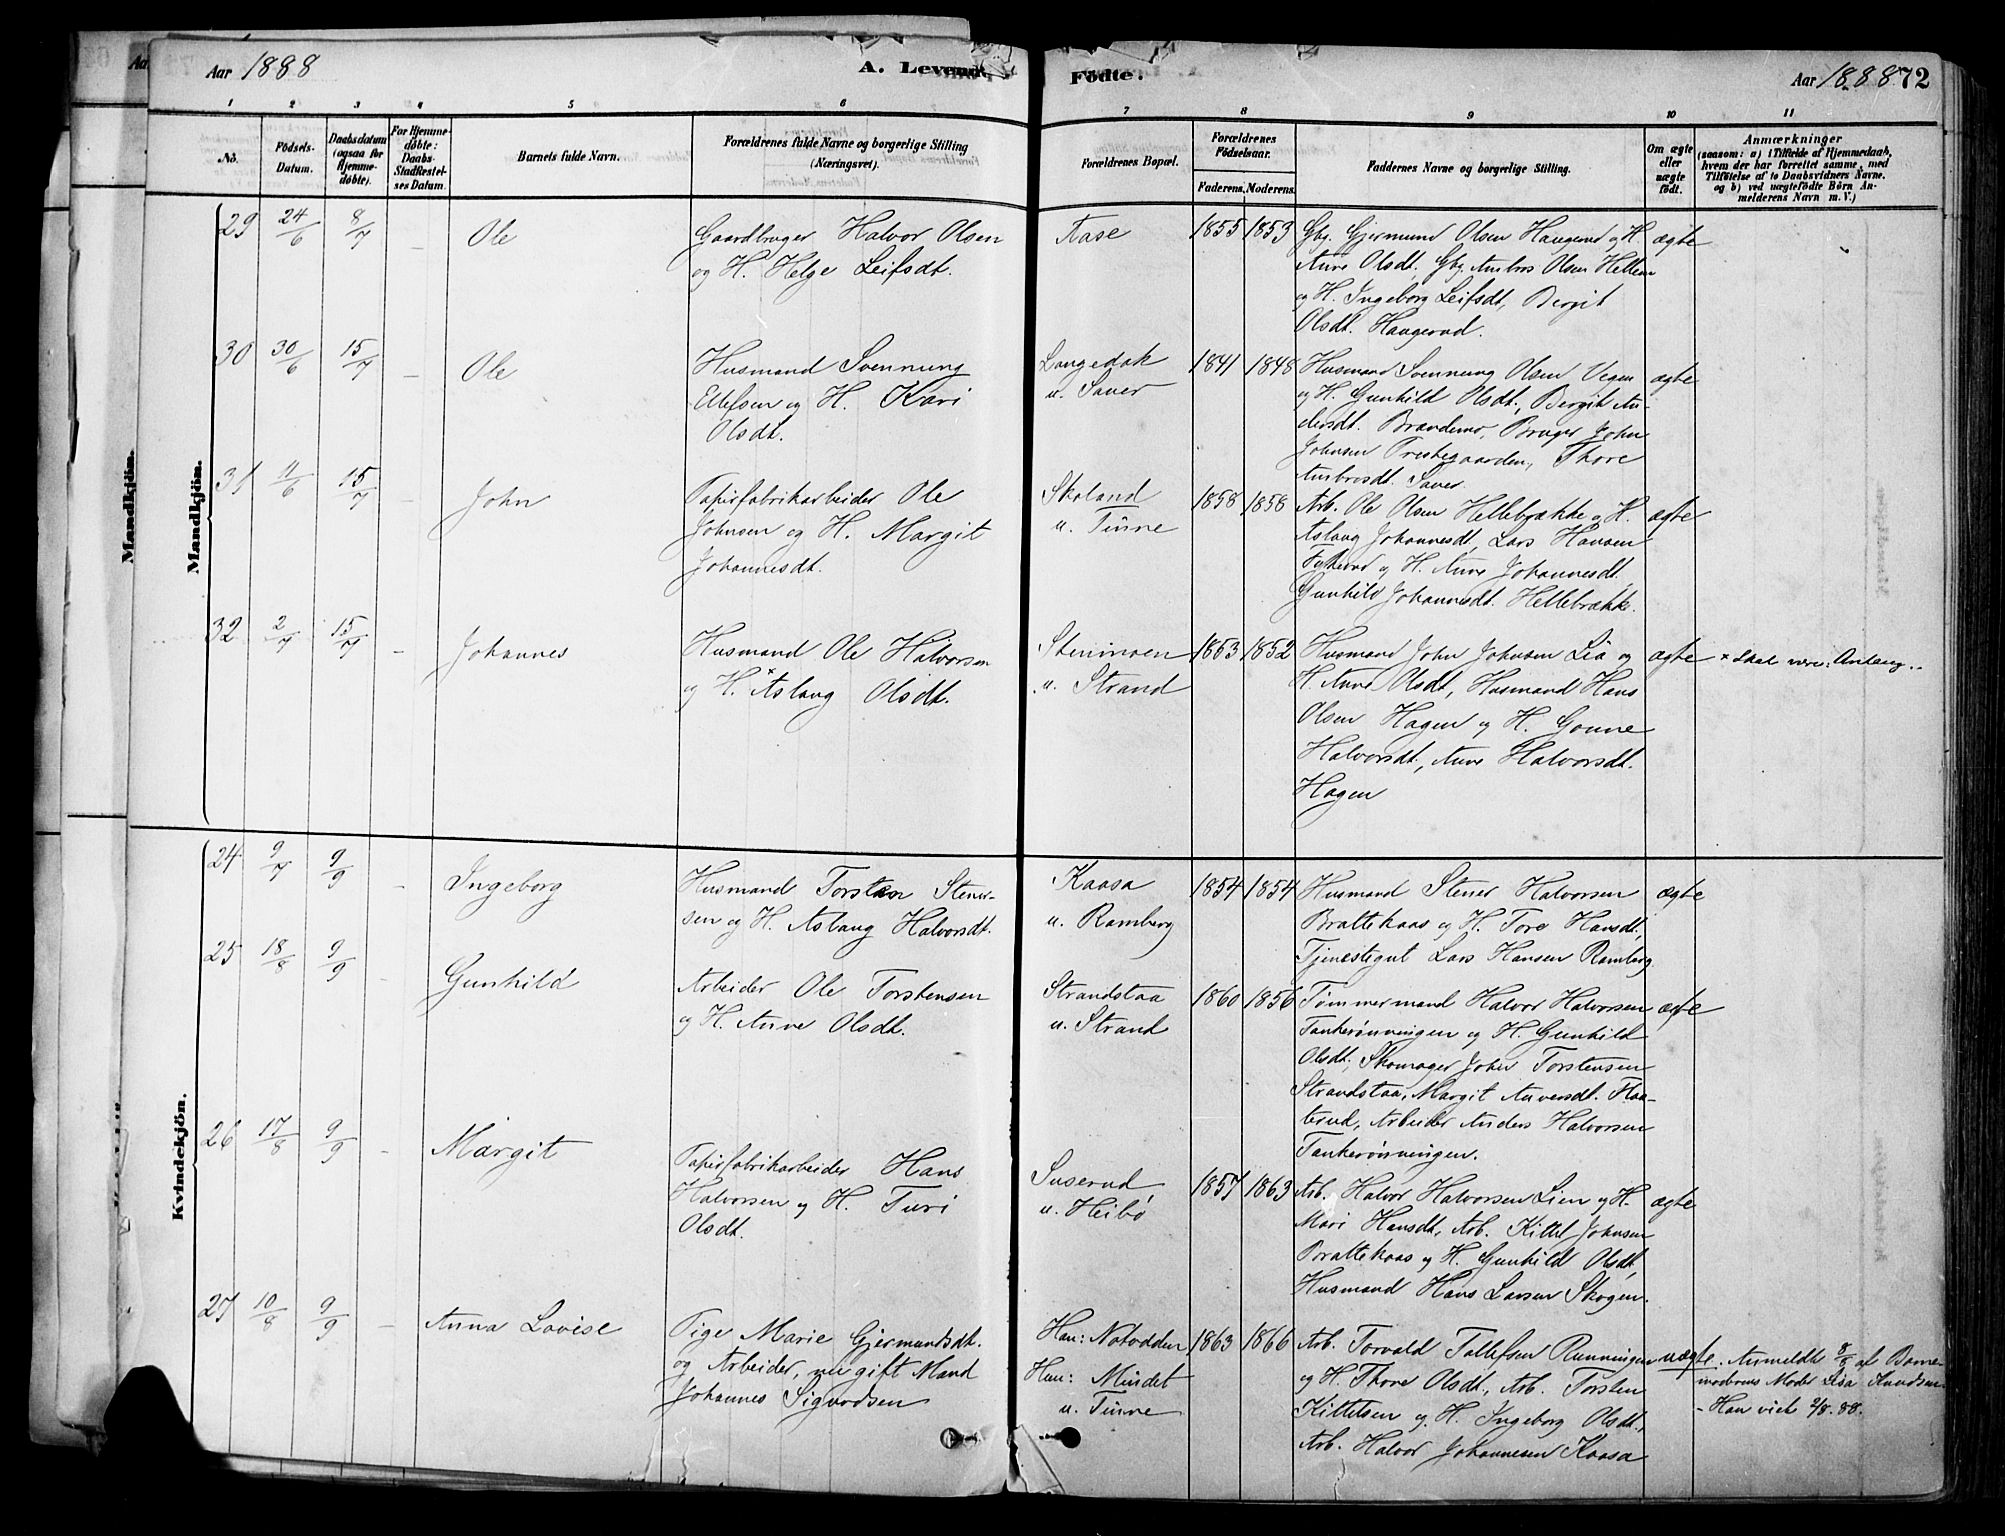 Aar 1888
A. Levende
Födte.
Aar 1888
72
1 2 3 4 5 6 7 8 9 10 11
No.
Födsels-
Datum.
Daabsdatum
(ogsaa for
Hjemme-
döbte).
For Hjemme-
döbte:
Daabs-
Stadfæstel-
ses Datum.
Barnets fulde Navn.
Forældrenes fulde Navne og borgerlige Stilling
(Næringsvei).
Forældrenes Bopæl.
Forældrenes
Födselsaar.
Faderens. Moderens.
Faddernes Navne og borgerlige Stilling.
Om ægte
eller
uægte
födt.
Anmærkninger
(saasom: a) i Tilfælde af Hjemmedaab,
hvem der har forrettet samme, med
Tilföielse af to Daabsvidners Navne.
og b) ved uægtefödte Börn An-
melderens Navn m. V.)
Mandkjön.
Mandkjön.
29 24/6 8/7 – Ole
Gaardbruger Halvor Olsen
og H. Helge Leifsdt.
Aase
1855 1853
Gbg. Gjermund Olsen Haugerud og H.
Anne Olsdt., Gbg. Ambros Olsen
og H. Ingeborg Leifsdt, Bergit
Olsdt. Haugerud.
ægte
30 30/6 15/7 – Ole
Husmand Svennung
Ellefsen og H. Kari
Olsdt.
Langedok
u. Sauer
1841 1848
Husmand Svennung Olsen
og H. Gunhild Olsdt., Bergit An-
dersdt. Brandemo, Bruger John
Johnsen Prestegaarden, Thore
Ambrosdt. Sauer.
ægte
31 11/6 15/7 – John
Papirfabrikarbeider Ole
Johnsen og H. Margit
Johannesdt.
Skoland
u. Tinne
1858 1858
Arb. Ole Olsen Hellebrække og H.
Aslaug Johannesdt, Lars Hansen
og H. Anne Johannesdt.
Gunhild Johannesdt. Hellebrække.
ægte
32 2/7 15/7 – Johannes
Husmand Ole Halvorsen
og H. ×Aslaug Olsdt.
Stenmoen
u. Strand
1853 1852
Husmand John Johnsen Lia og
H. Anne Olsdt, Husmand Hans
Olsen Hagen og H. Gonne
Halvorsdt., Anne Halvorsdt.
Hagen
ægte
× skal være:
Kvindekjön.
24 9/7 9/9 – Ingeborg
Husmand Torsten Stener-
sen og H. Aslaug Halvorsdt.
Kaasa
u. Ramberg
1854 1854
Husmand Stener Halvorsen
Brattekaas og H. Tore Hansdt,
Tjenestegut Lars Hansen Ramberg.
ægte
25 18/8 9/9 – Gunhild
Arbeider Ole Torstensen
og H. Anne Olsdt.
Strandstaa
u. Strand
1860 1856
Tømmermand Halvor Halvorsen
Tankerønningen og H. Gunhild
Olsdt, Skomager John Torstensen
Strandstaa, Margit Anversdt. Haa-
terud, Arbeider Anders Halvorsen
Tankerønningen.
ægte
26 17/8 9/9 – Margit
Papirfabrikarbeider Hans
Halvorsen og H. Turi
Olsdt.
Suserud
u. Heibø
1857 1863
Arb. Halvor Halvorsen Lien og H.
Mari Hansdt, Arb. Kittel Johnsen
Brattekaas og H. Gunhild Olsdt,
Husmand Hans Larsen Skogen.
ægte
27 10/8 9/9 – Anna Lovise
Pige Marie Gjermundsdt.
og Arbeider, nu gift Mand
Johannes Sigurdsen
Hun: Notodden
Han: Mindet
u. Tinne
1863 1866
Arb. Torvald Tollefsen Rønningen
og H. Thore Olsdt., Arb. Torsten
Kittelsen og H. Ingeborg Olsdt.,
Arb. Halvor Johannesen Kaasa
uægte. Anmeldt 8/8 af Barne-
moderens Moder Lisa Knudsen.
– Han viet 2/8.88.